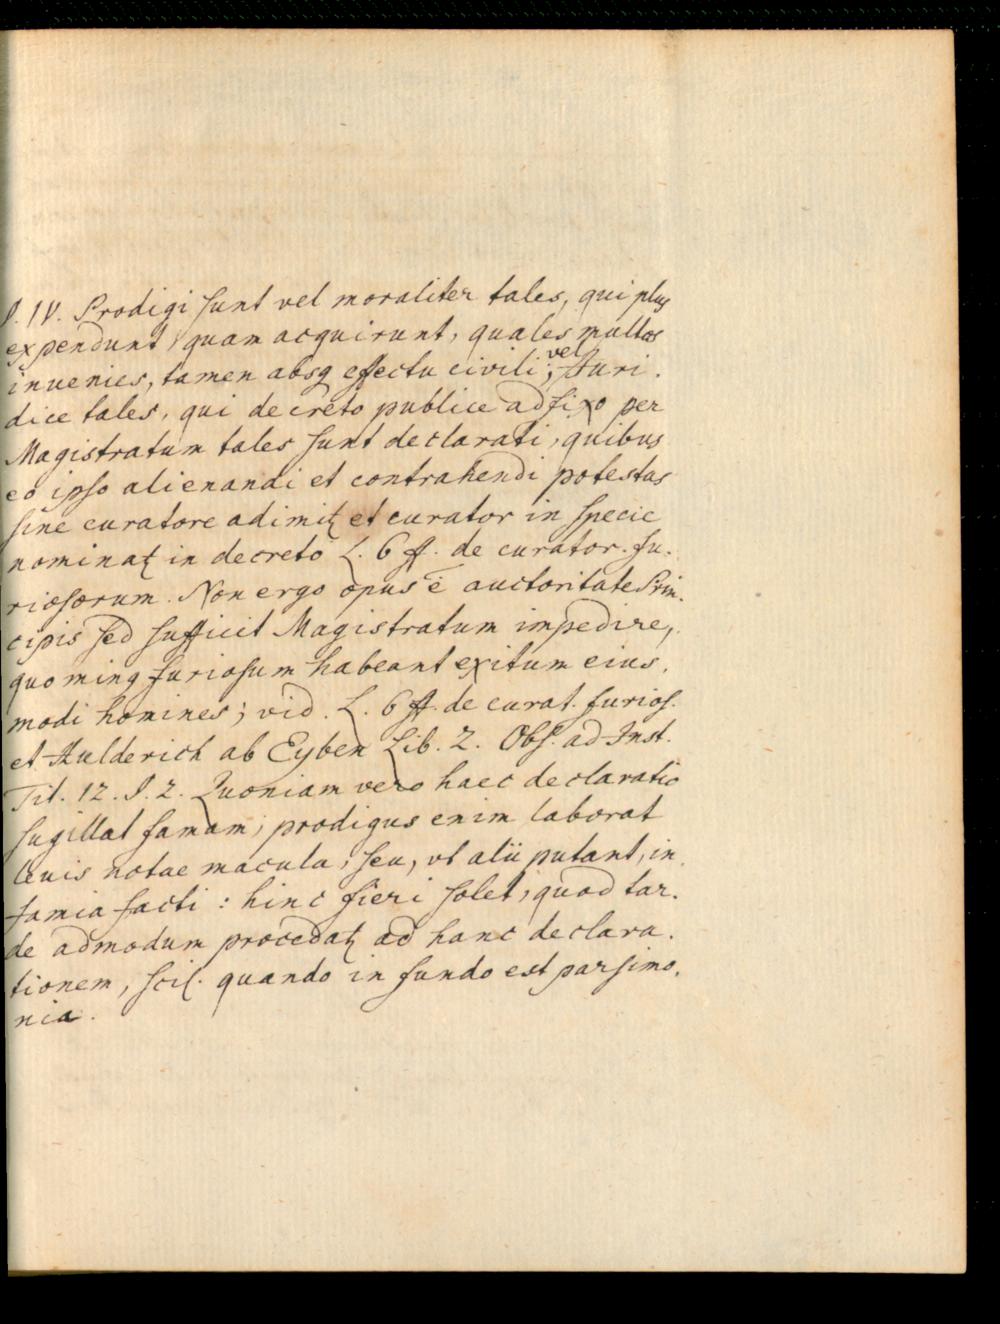 §. IV. Prodigi sunt vel moraliter tales, qui plus
expendunt, quam acquirunt, quales multos
invenies, tamen absq effectu civili; vel Juri-
dice tales, qui decreto publice adfixo per
Magistratum tales sunt declarati, quibus
eo ipso alienandi et contrahendi potestas
sine curatore adimitʒ et curator in specie
nominatʒ in decreto L. 6 ff. de curator. fu-
riosorum. Non ergo opus ē auctoritate Prin-
cipis sed sufficit Magistratum impedire,
quo minq furiosum habeant exitum eius-
modi homines; vid. L. 6 ff. de curat. furios.
et Hulderich ab Eyben Lib. 2. Obs. ad Inst.
Tit. 12. §. 2. Quoniam vero haec declaratio
sugillat famam; prodigus enim laborat
leuis notae macula, seu, vt alii putant, in-
famia facti: hinc fieri solet, quod tar-
de admodum procedatʒ ad hanc declara-
tionem, scil. quando in fundo est parsimo-
nia.